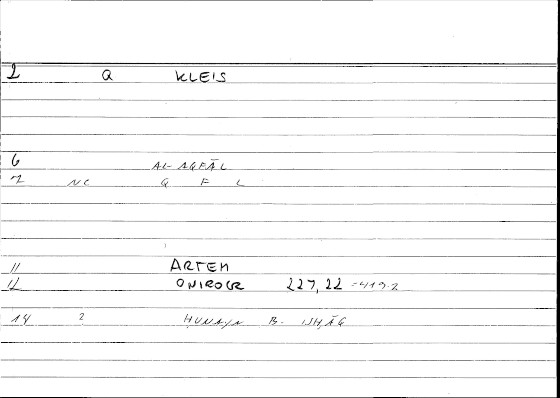 2 Q KLEIS
6 AL-AQFĀL
7 NC Q F L
11 ARTEM
12 ONIROCR 227,22 =419.2
14 2 ḤUNAYN B. ISḤĀQ